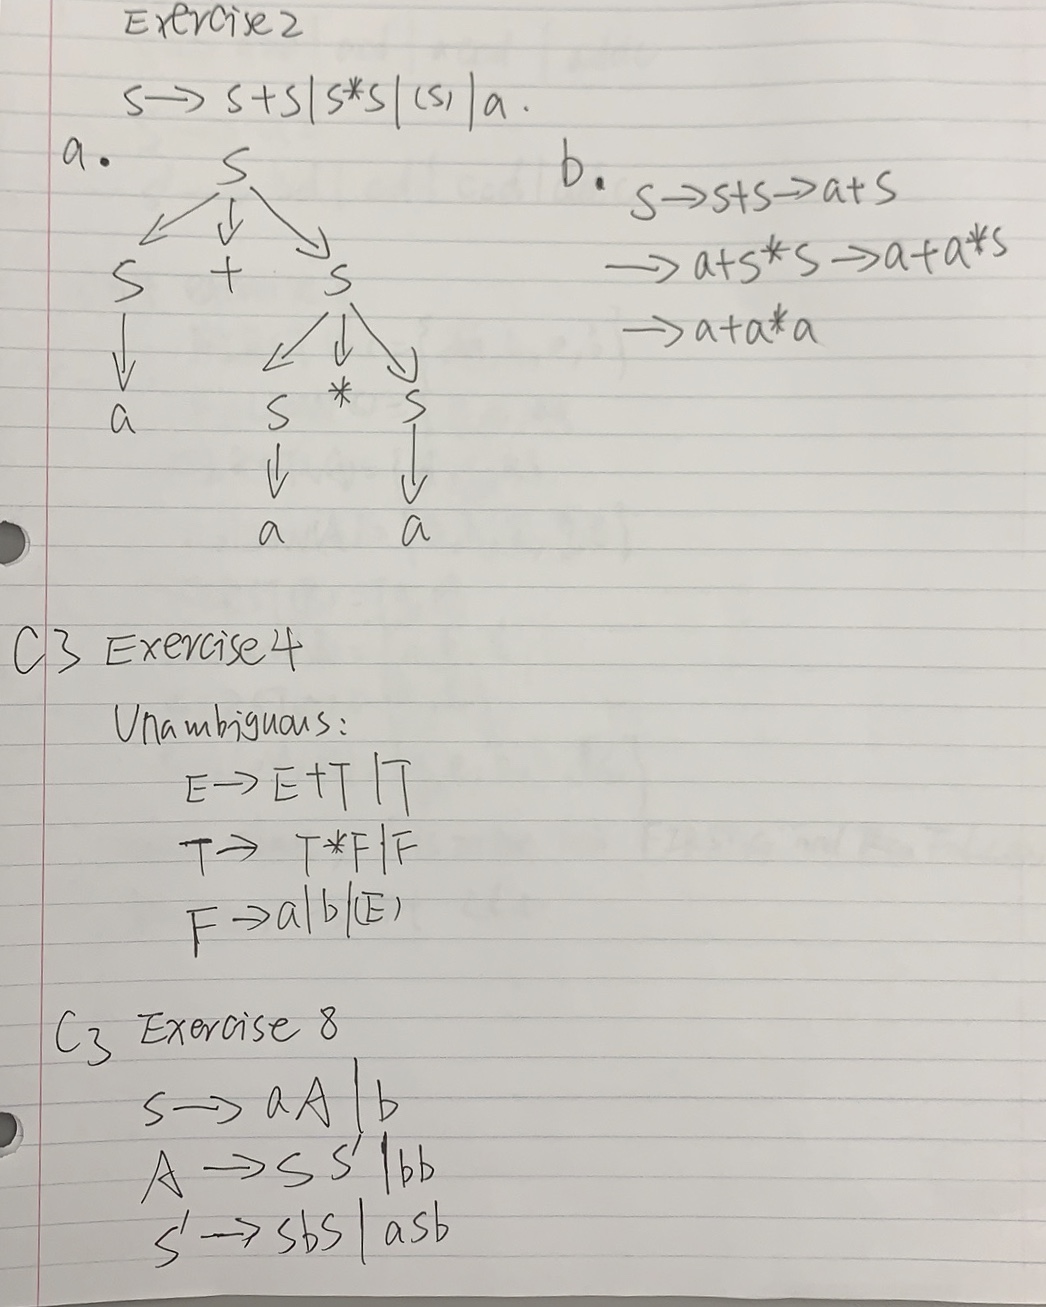 Exercise 2
S → S+S | S*S | (S) | a .
a.
S
S + S
a S * S
a a
b.
S → S+S → a+S
→ a+S*S → a+a*S
→ a+a*a
C3 Exercise 4
Unambiguous:
E → E+T | T
T → T*F | F
F → a | b | (E)
C3 Exercise 8
S → aA | b
A → SS' | bb
S' → SbS | aSb